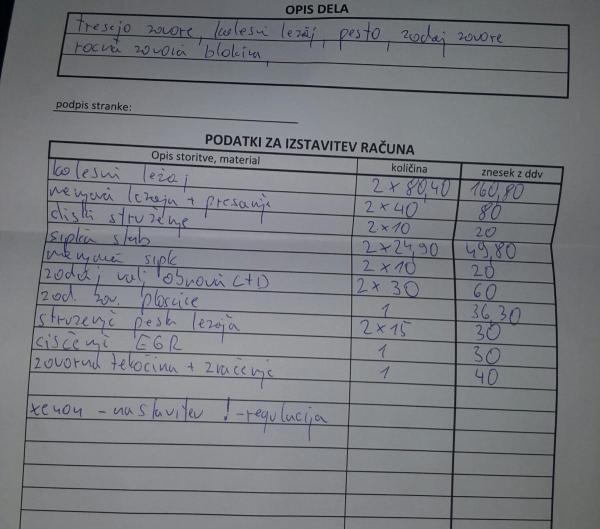 OPIS DELA
tresejo zavore, kolesni ležaj, pesto, zadaj zavore
ročna zavora blokira,
podpis stranke:
PODATKI ZA IZSTAVITEV RAČUNA
Opis storitve, material količina znesek z ddv
kolesni ležaj 2 x 80,40 160,80
menjava ležaja + presanje 2 x 40 80
diski struženje 2 x 10 20
sipka stab 2 x 24,90 49,80
menjava sipk 2 x 10 20
zadaj valj obnova L+D 2 x 30 60
zad. zav. ploščice 1 36,30
struženje pesta ležaja 2 x 15 30
čiščenje EGR 1 30
zavorna tekočina + zračenje 1 40
xenon - nastavitev ! - regulacija